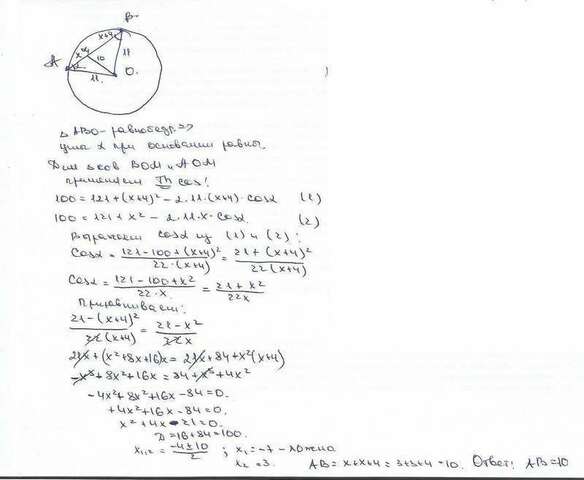 B.
x+4
A
x
M
10
11
α
11.
O.
△ ABO - равнобедр. =>
углы α при основании равны.
Для △-ков BOM и AOM
применяем Th cos:
100 = 121 + (x+4)² - 2·11·(x+4)·cosα (1)
100 = 121 + x² - 2·11·x·cosα. (2)
Выражаем cosα из (1) и (2):
Cosα = 121-100+(x+4)² / 22·(x+4) = 21+(x+4)² / 22(x+4)
Cosα = 121-100+x² / 22·x. = 21+x² / 22x
Приравниваем:
21-(x+4)² / 22(x+4) = 21-x² / 22x
21x+(x²+8x+16)x = 21x+84+x²(x+4)
-x³+8x²+16x = 84+x³+4x²
-4x²+8x²+16x-84=0.
+4x²+16x-84=0.
x²+4x-21=0.
D=16+84=100.
x₁,₂ = -4±10 / 2 ; x₁=-7 - ложно
x₂=3. AB=x+x+4=3+3+4=10. Ответ: AB=10